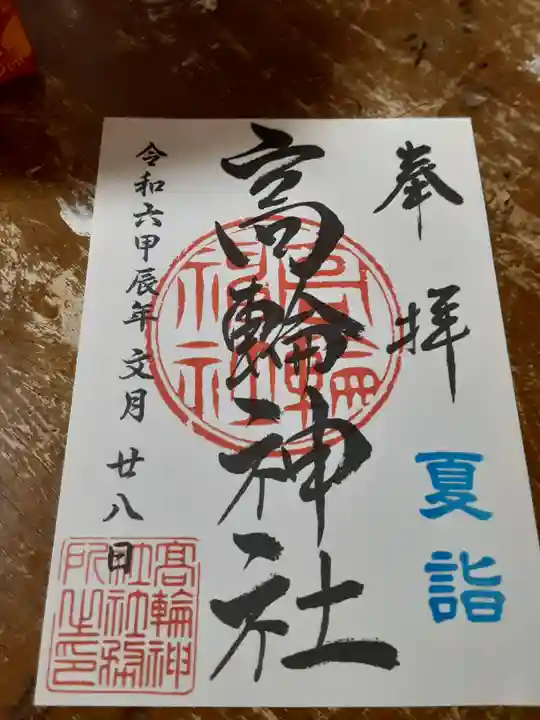 奉拝
夏詣
高輪神社
高輪神社
令和六甲辰年文月廿八日
高輪神社社務所之印